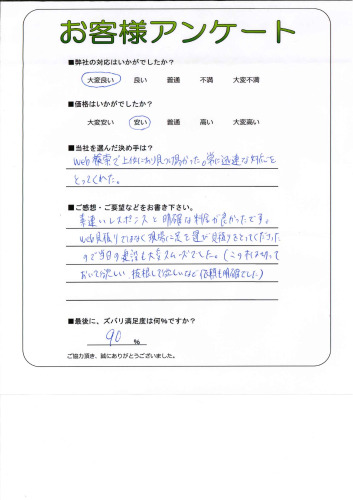 お客様アンケート
■弊社の対応はいかがでしたか?
大変良い 良い 普通 不満 大変不満
■価格はいかがでしたか?
大変安い 安い 普通 高い 大変高い
■当社を選んだ決め手は?
web検索で上位にあり見つけ易かった。常に迅速な対応を
とってくれた。
■ご感想・ご要望などをお書き下さい。
素速いレスポンスと明確な料金が良かったです。
web見積りではなく現場に足を運び見積りをとってくださった
ので当日の搬送も大変スムーズでした。(この木は切って
おいて欲しい 抜根して欲しいなど依頼も明確でした)
■最後に、ズバリ満足度は何%ですか?
90 %
ご協力頂き、誠にありがとうございました。